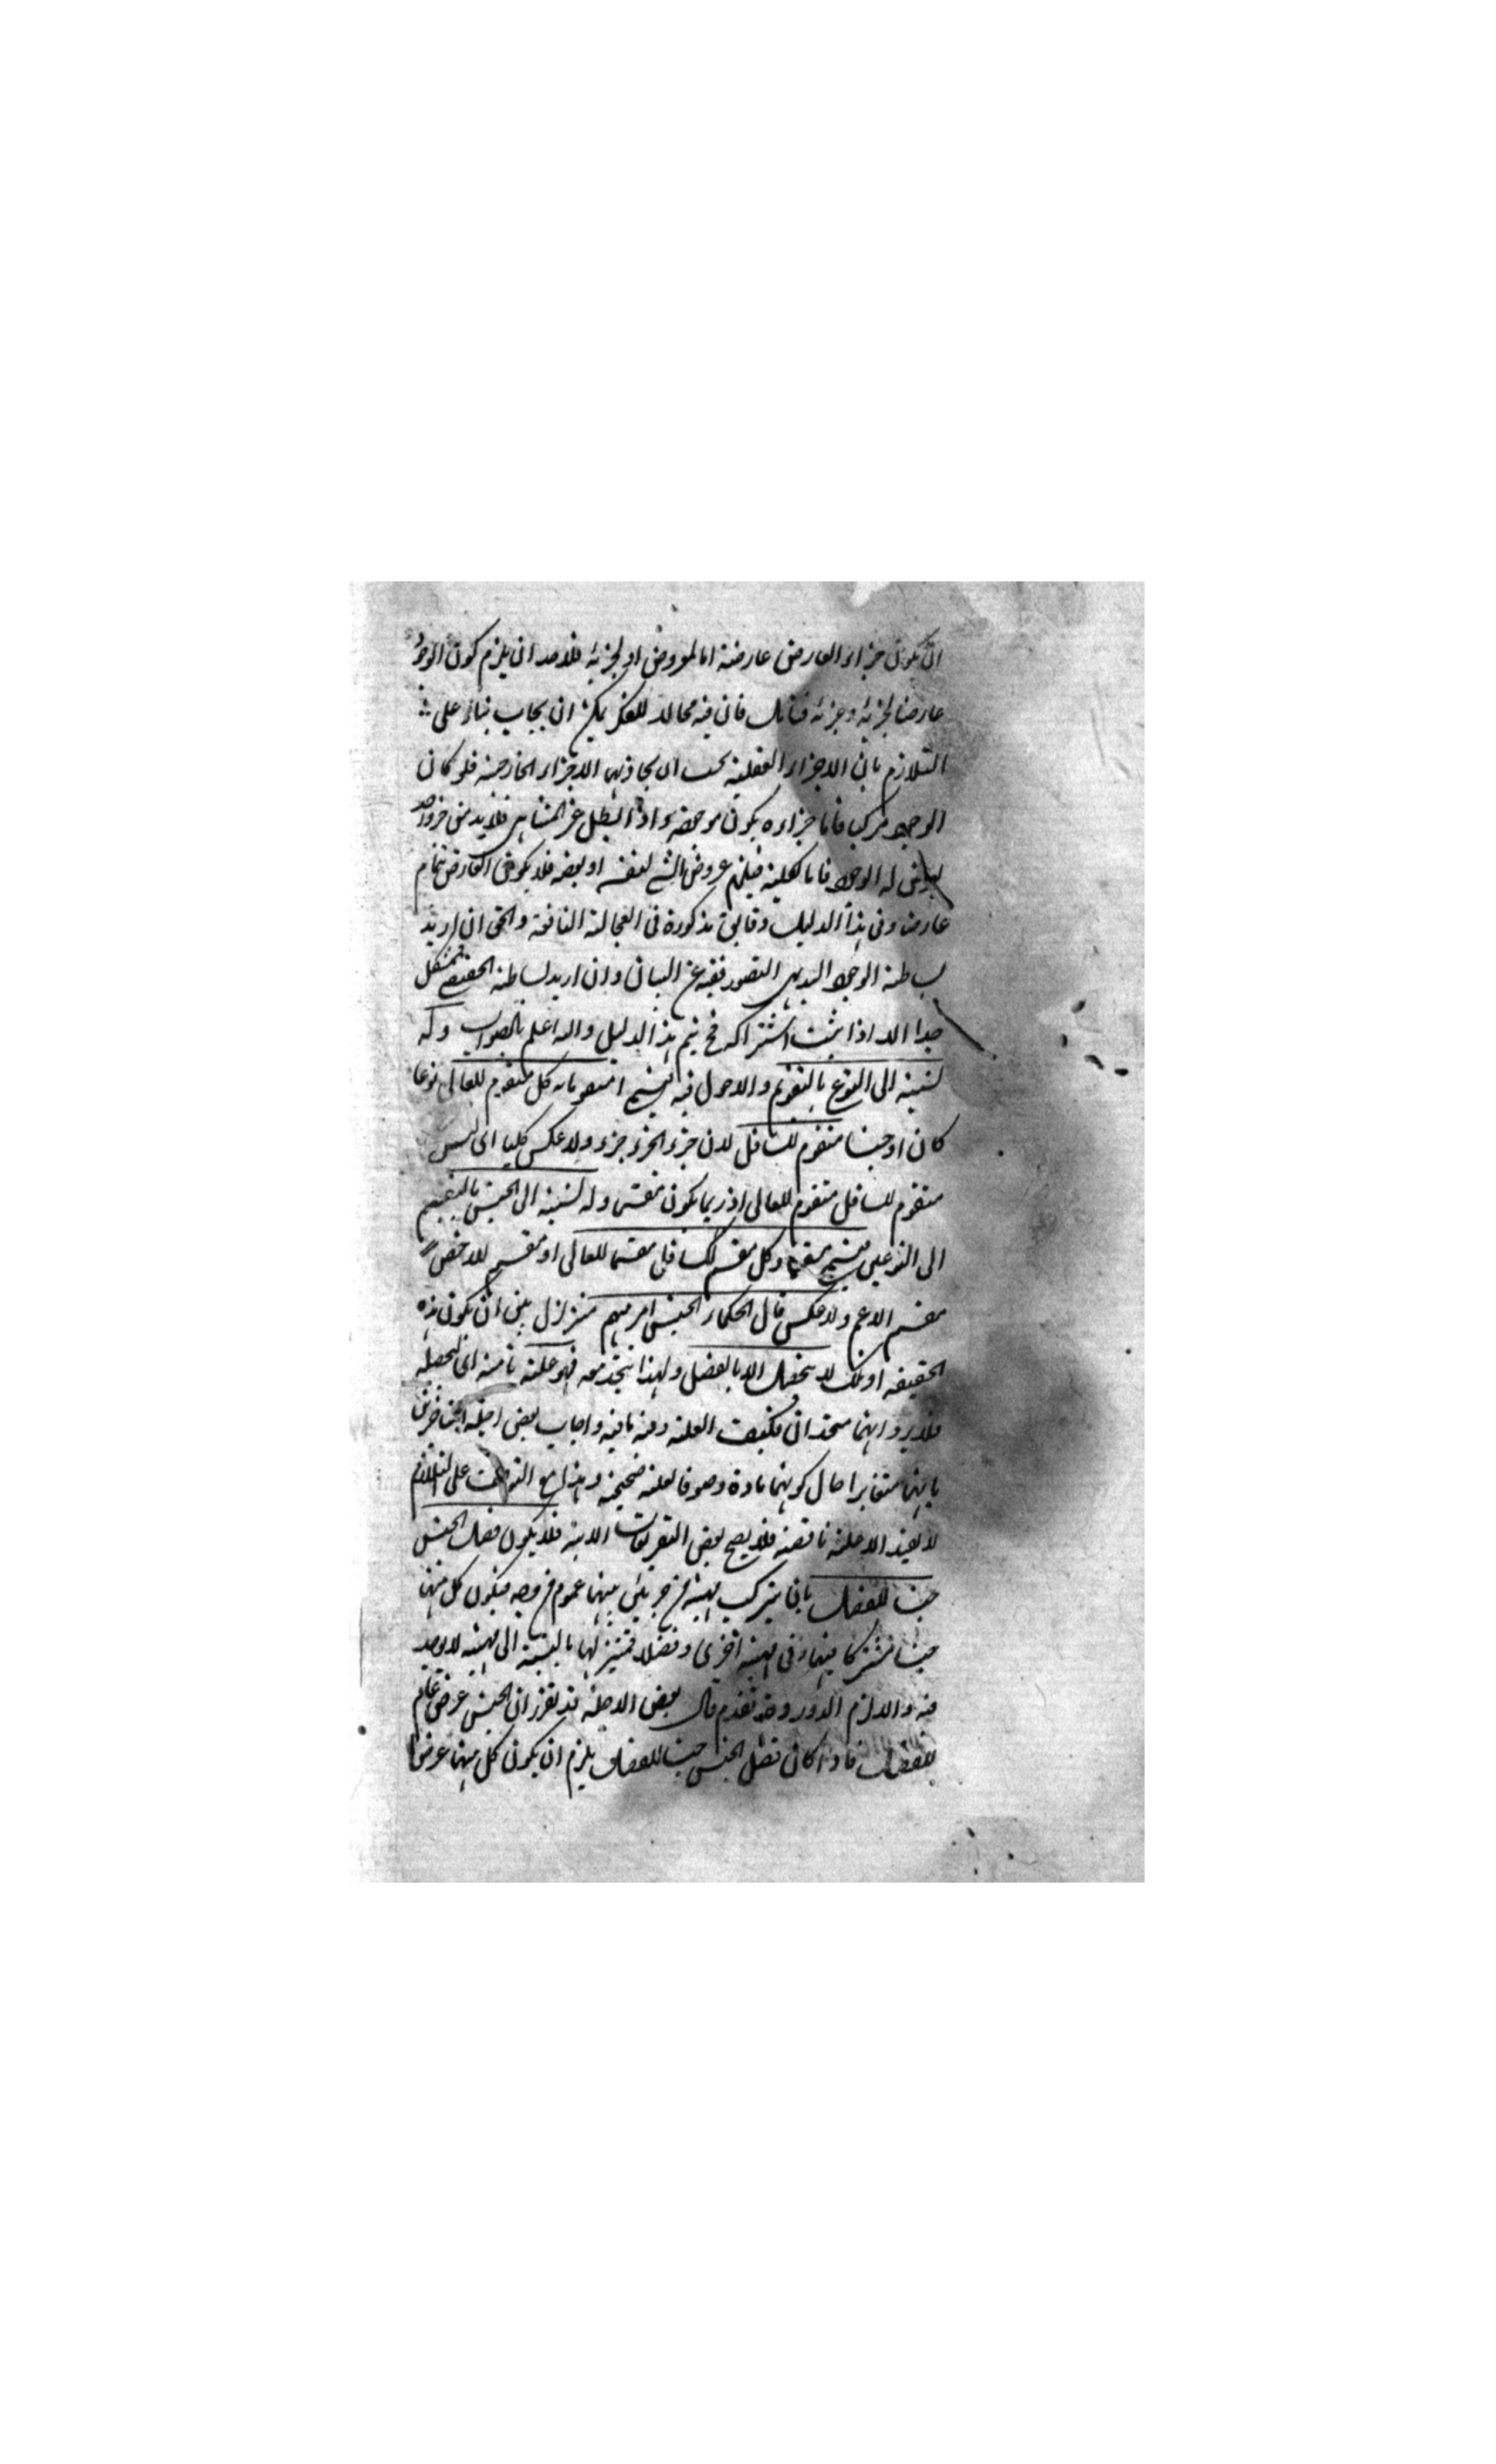 ان يكون جزاء العارض عارضة اما لمعروض او لجزئه فلا بد ان يلزم كون الوجود
عارضا لجزئه وجزئه فان فيه مجالا للفكر يمكن ان يجاب بناء على
التلازم بان الاجزاء العقلية يجب ان يحاذيها الاجزاء الخارجية فلو كان
الوجود مركبا فاما اجزاءه يكون موجودة واذا بطل غير المتناهي فلا بد من جزء واحد
يعرض له الوجود فاما كلية فيلزم عروض الشئ لنفسه او بعضه فلا يكون العارض بتمام
عارض وفي هذا الدليل دقايق مذكورة في العجالة النافعة والحق ان اريد
بساطة الوجود البديهي التصور فغير عن البيان وان اريد بساطة الحقيقة فمشكل
جدا الا اذا ثبت اشتراكه فح يتم هذا الدليل والله اعلم بالصواب وله
نسبة الى النوع بالتقويم والاحول فيه كل مقوم للعالي نوعا
كان او جنسا مقوم للسافل لان جزء الجزء جزء ولا عكس كليا اى ليس
مقوم للسافل مقوم للعالي اذ ربما يكون مقسم وله نسبة الى الجنس بالتقسيم
الى النوعين وكل مقسم للسافل مقسما للعالي او مقسم للاخص
مقسم الاعم ولا عكس قال الحكماء الجنس امر مبهم متزلزل بين ان يكون هذه
الحقيقة او تلك لا يتحصل الا بالفصل ولهذا يتحد معه فهو علة تامة اى لتحصله
فلا يرد انهما متحدان فكيف العلة واجاب بعض اجلة المتاخرين
بانهما متغايرا حال كونهما مادة وصورة العلة صحيحة وهذا مع التوقف على التلازم
لا يفيد الا علة ناقصة فلا يصح بعض التعريفات الاتية فلا يكون فصل الجنس
جنسا للفصل بان يتركب مهية من جزئين بينهما عموم من وجه فيكون كل منهما
جنسا مشتركا فيها وفي مهية اخرى وفصلا تميز لها بالنسبة الى مهية لا يوجد
فيه والا لزم الدور وقد تقدم قال بعض الاجلة قد تقرر ان الجنس عرض عام
للفصل فاذا كان فصل الجنس جنسا للفصل يلزم ان يكون كل منهما عرضا